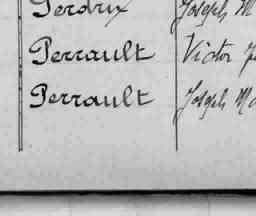 Perdrix Joseph M
Perrault Victor
Perrault Joseph Ma